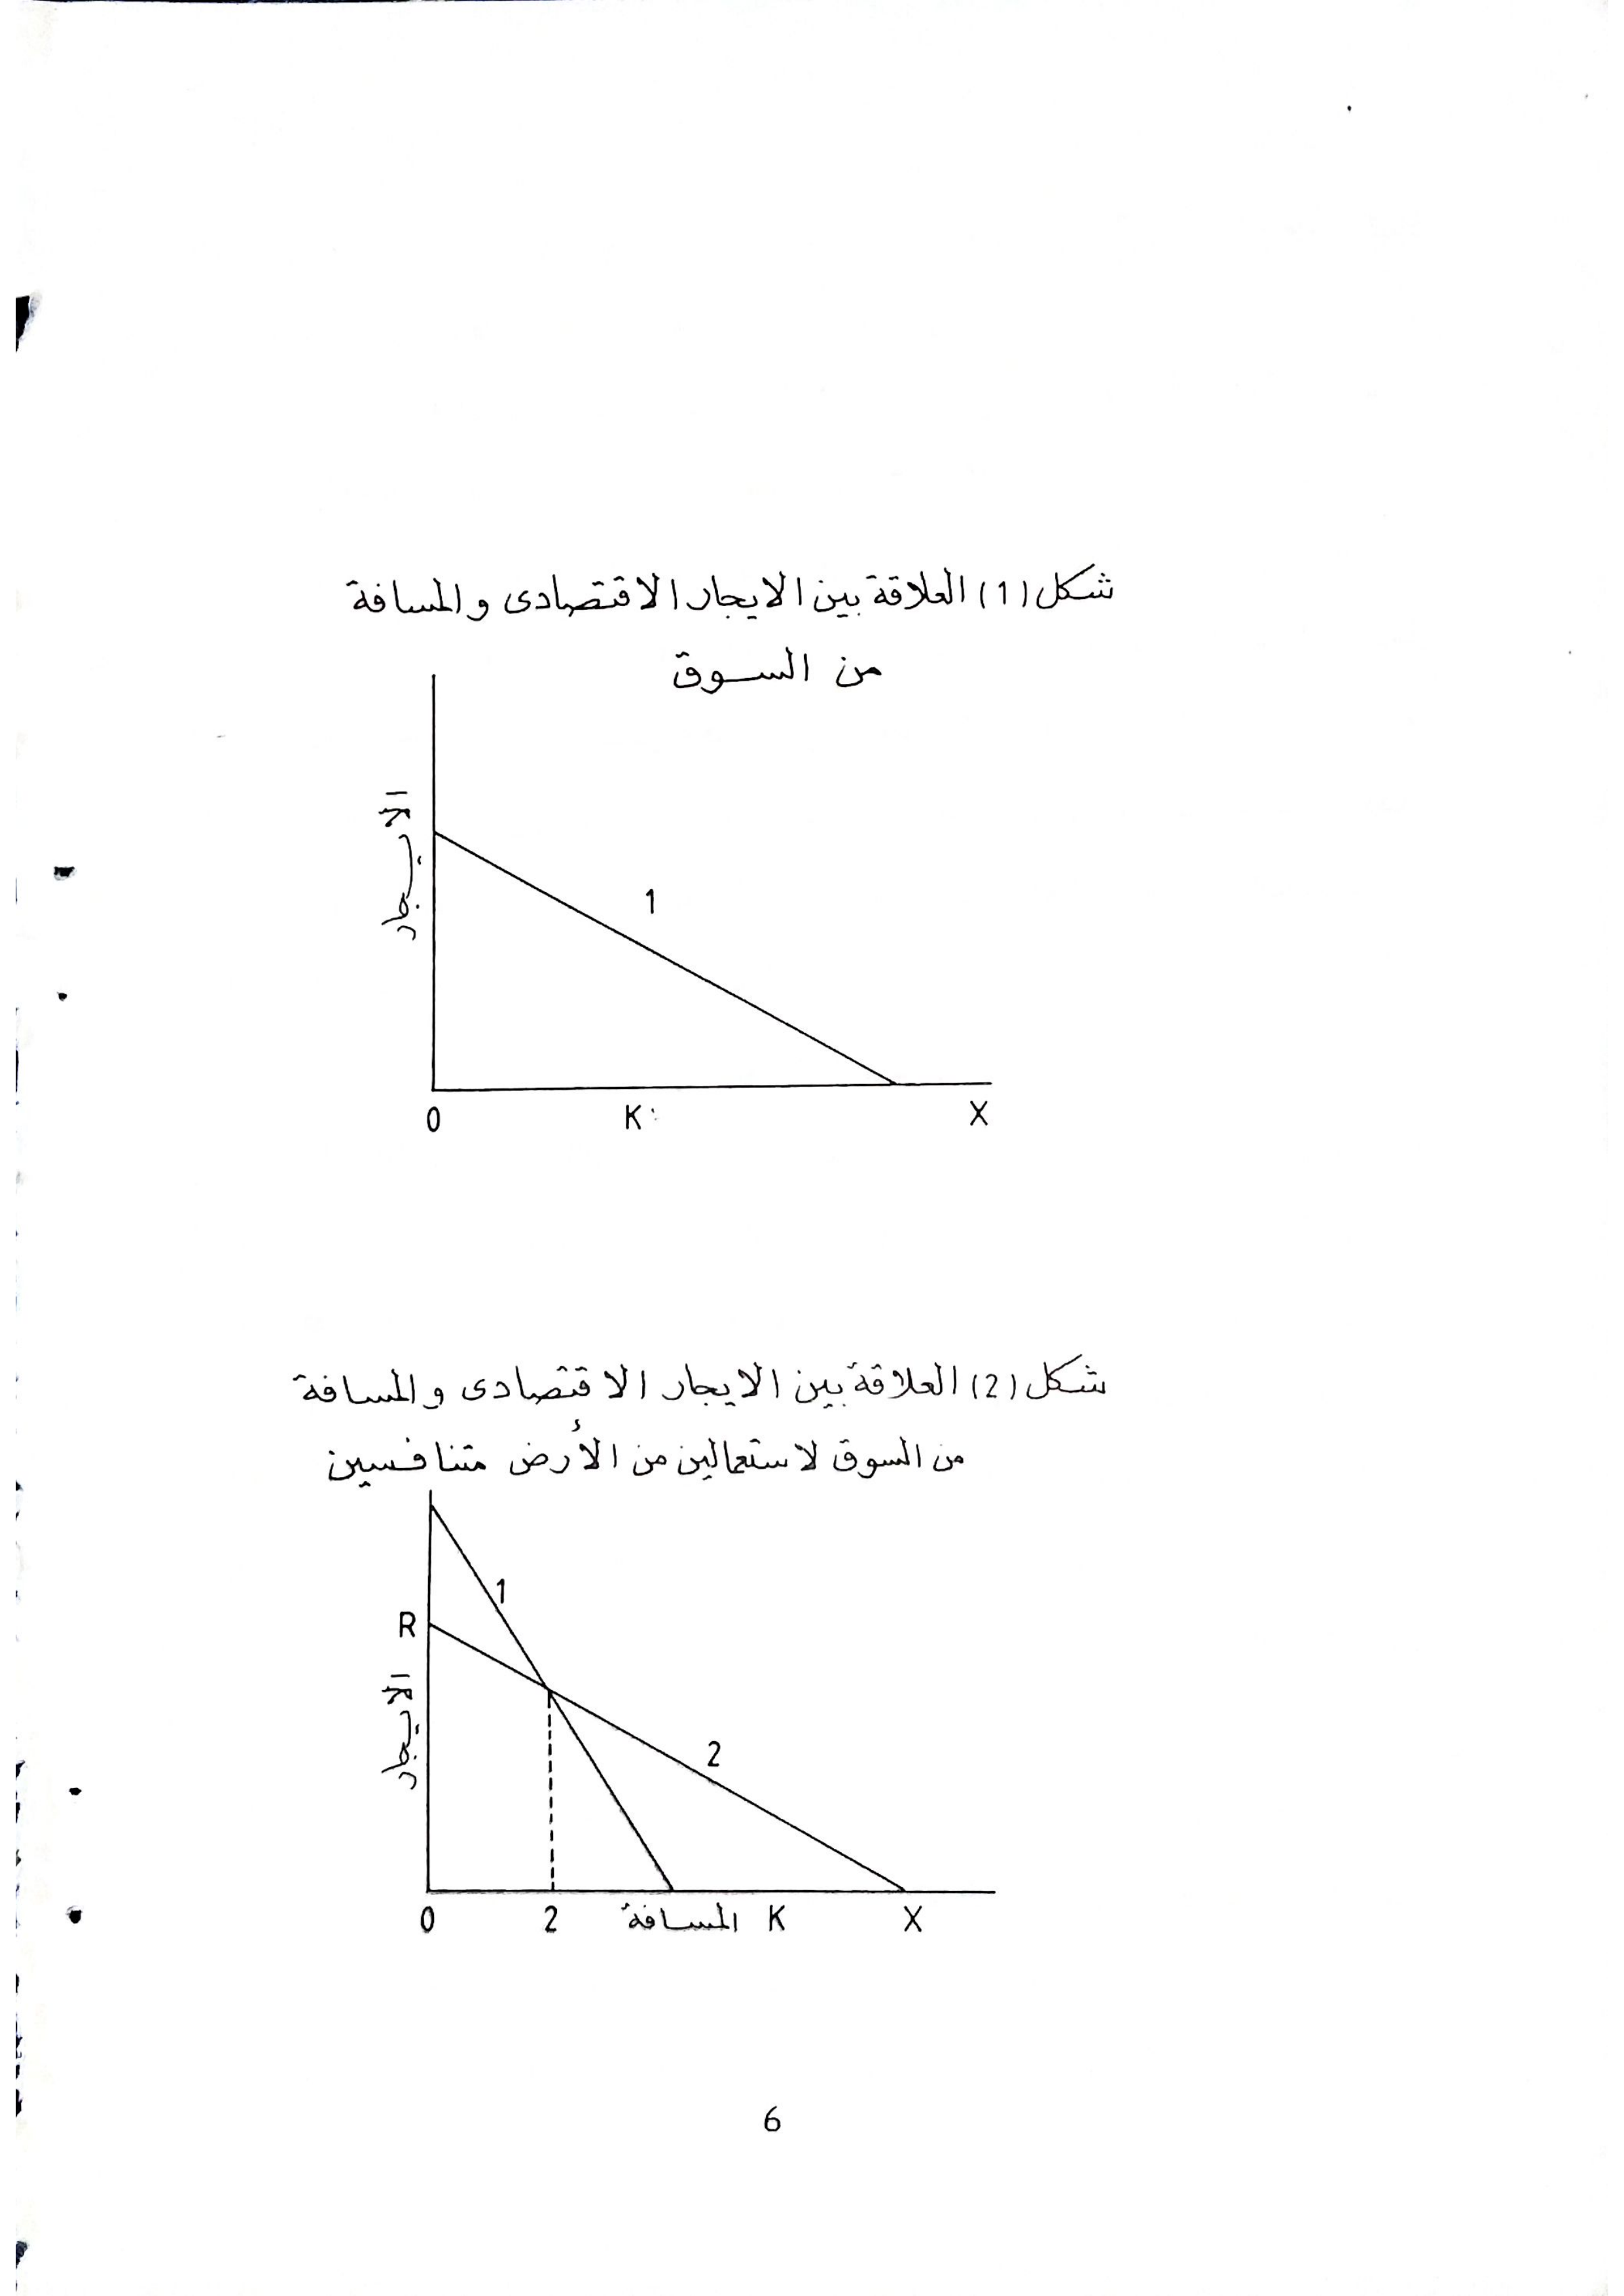 شكل (1) العلاقة بين الايجار الاقتصادى والمسافة
من السوق
الايجار
1
0 K X
شكل (2) العلاقة بين الايجار الاقتصادى والمسافة
من السوق لاستعمالين من الأرض متنافسين
1
R
الايجار
2
0 2 المسافة K X
6